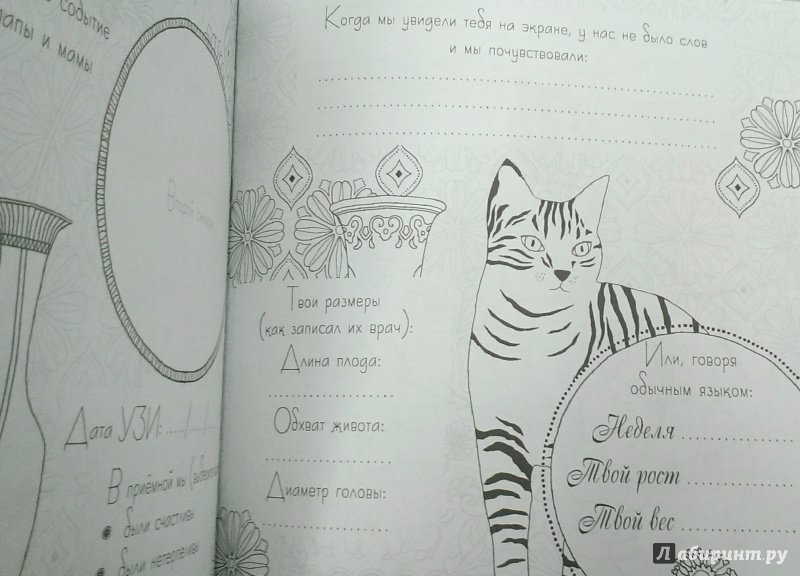 событие
папы и мамы
Второй снимок
Дата УЗИ:...../..../...
В приёмной мы
были счастливы
были нетерпеливы
Когда мы увидели тебя на экране, у нас не было слов
и мы почувствовали:
Твои размеры
(как записал их врач):
Длина плода:
Обхват живота:
Диаметр головы:
Или, говоря
обычным языком:
Неделя
Твой рост
Твой вес
Лабиринт.ру